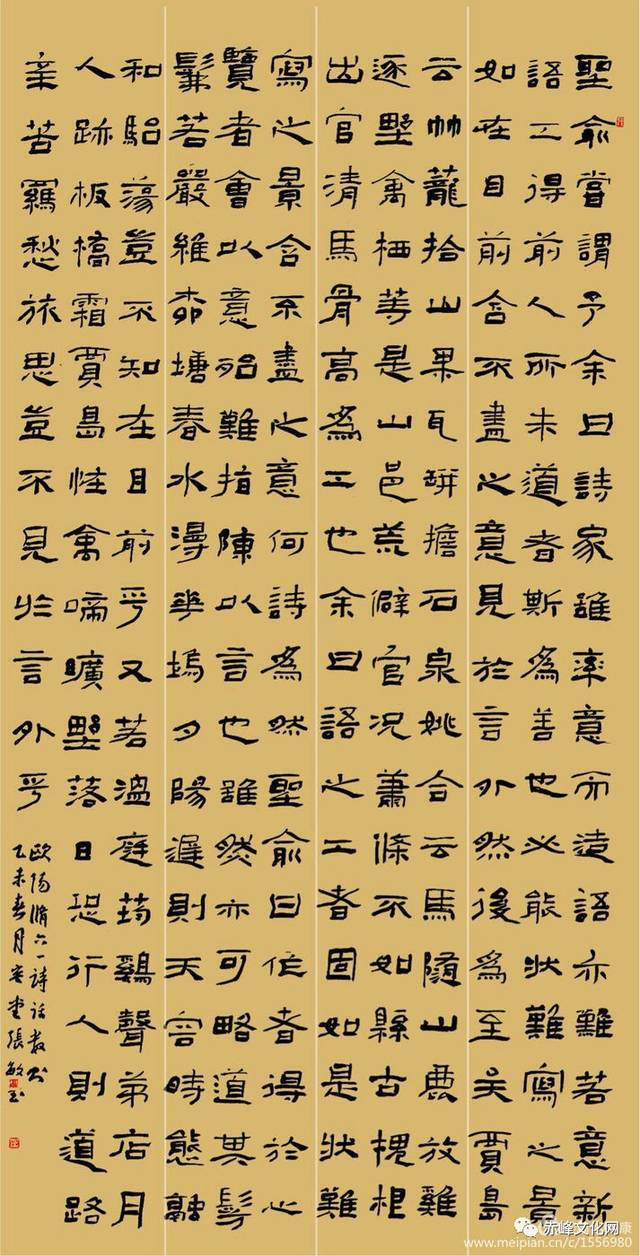 聖俞嘗謂予余曰詩家雖率意而造語亦難若意新
語工得前人所未道者斯為善也必能狀難寫之景
如在目前含不盡之意見於言外然後為至矣賈島
云竹籠拾山果瓦缾擔石泉姚合云馬隨山鹿放雞
逐野禽栖等是山邑荒僻官況蕭條不如縣古槐根
出官清馬骨高為工也余曰語之工者固如是狀難
寫之景含不盡之意何詩為然聖俞曰作者得於心
覽者會以意殆難指陳以言也雖然亦可略道其髣
髴若嚴維柳塘春水漫華塢夕陽遲則天容時態融
和駘蕩豈不知在目前乎又若溫庭筠鷄聲茅店月
人跡板橋霜賈島怪禽啼曠野落日恐行人則道路
辛苦羈愁旅思豈不見於言外乎
歐陽脩六一詩話
乙未春月張敏
赤峰文化网
康
www.meipian.cn/c/1556980